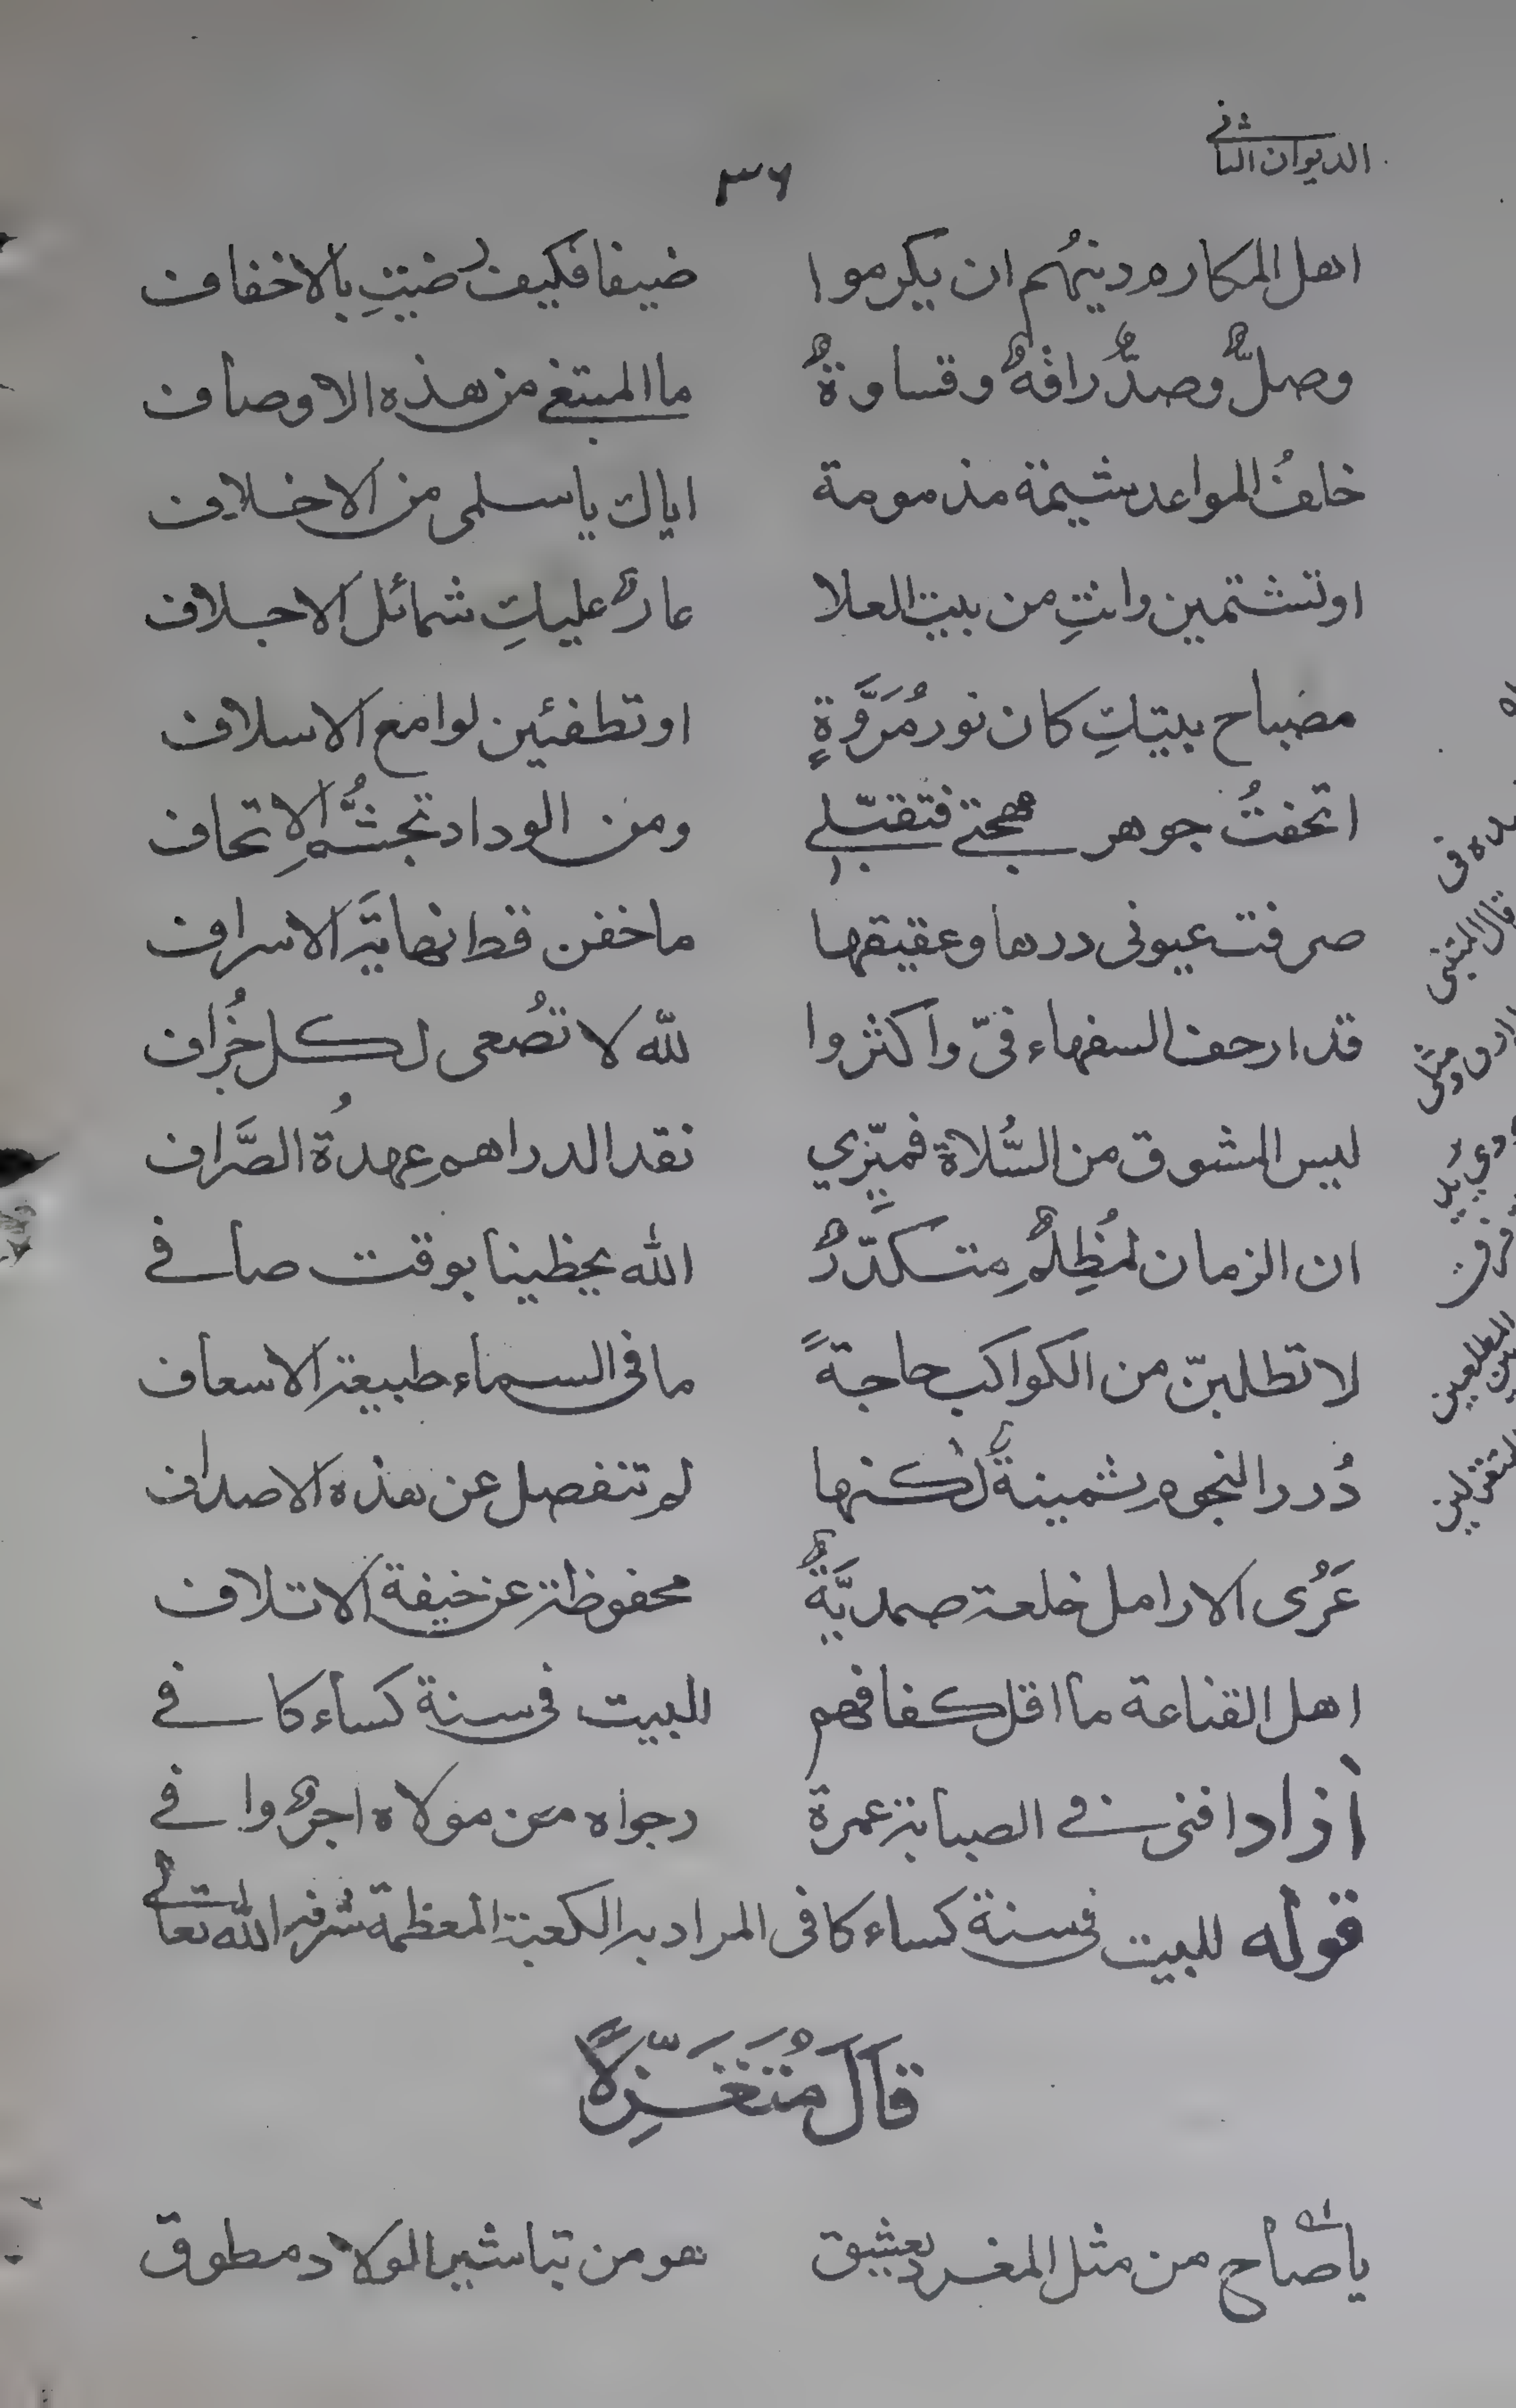 الديوان الثاني
٣٦
اهل المكارم دينهُم ان يكرموا ضيفا فكيف رضيتِ بالاخفاف
وصلٌ وصدٌّ رافةٌ وقساوةٌ ما المبتغى من هذه الاوصاف
خلفُ المواعد شيمة مذمومة اياك يا سلمى من الاخلاف
او تشتمين وانتِ من بيت العلا عارٌ عليكِ شمائل الاجلاف
مصباح بيتكِ كان نور مُرَوَّةٍ او تطفئين لوامع الاسلاف
اتحفتُ جوهر مهجتي فتقبّلي ومن الوداد تجشُّم الاِتحاف
صرفت عيونى دررها وعقيقها ما خفن قط نهايةَ الاسراف
قد ارحف السفهاء فىّ واكثروا للّه لا تصُعى لكل خُزاف
ليس المشوق من السُّلاة فميّزي نقد الدراهم عهدةُ الصَّراف
ان الزمان لمُظِلمٌ متكدّرٌ الله يحظينا بوقت صافي
لا تطلبنّ من الكواكب حاجةً ما فى السماء طبيعة الاسعاف
دُرر النجوم ثمينةٌ لكنها لم تنفصل عن هذه الاصداف
عَرُى الارامل خلعة صمديَّةٌ محفوظة عن خيفة الاتلاف
اهل القناعة ما اقل كفافهم للبيت فى سنة كساء كافي
اٰزاد افنى في الصبابة عمرة رجواه من مولاه اجرٌ وافي
قوله للبيت فى سنة كساء كافى المراد به الكعبة المعظمة شرفها الله تعالى
قَالَ مُتَغَزِّلًا
يا صاح من مثل المغرد يعشيق هو من تباشير المولاد مطوق
قال المتنبى